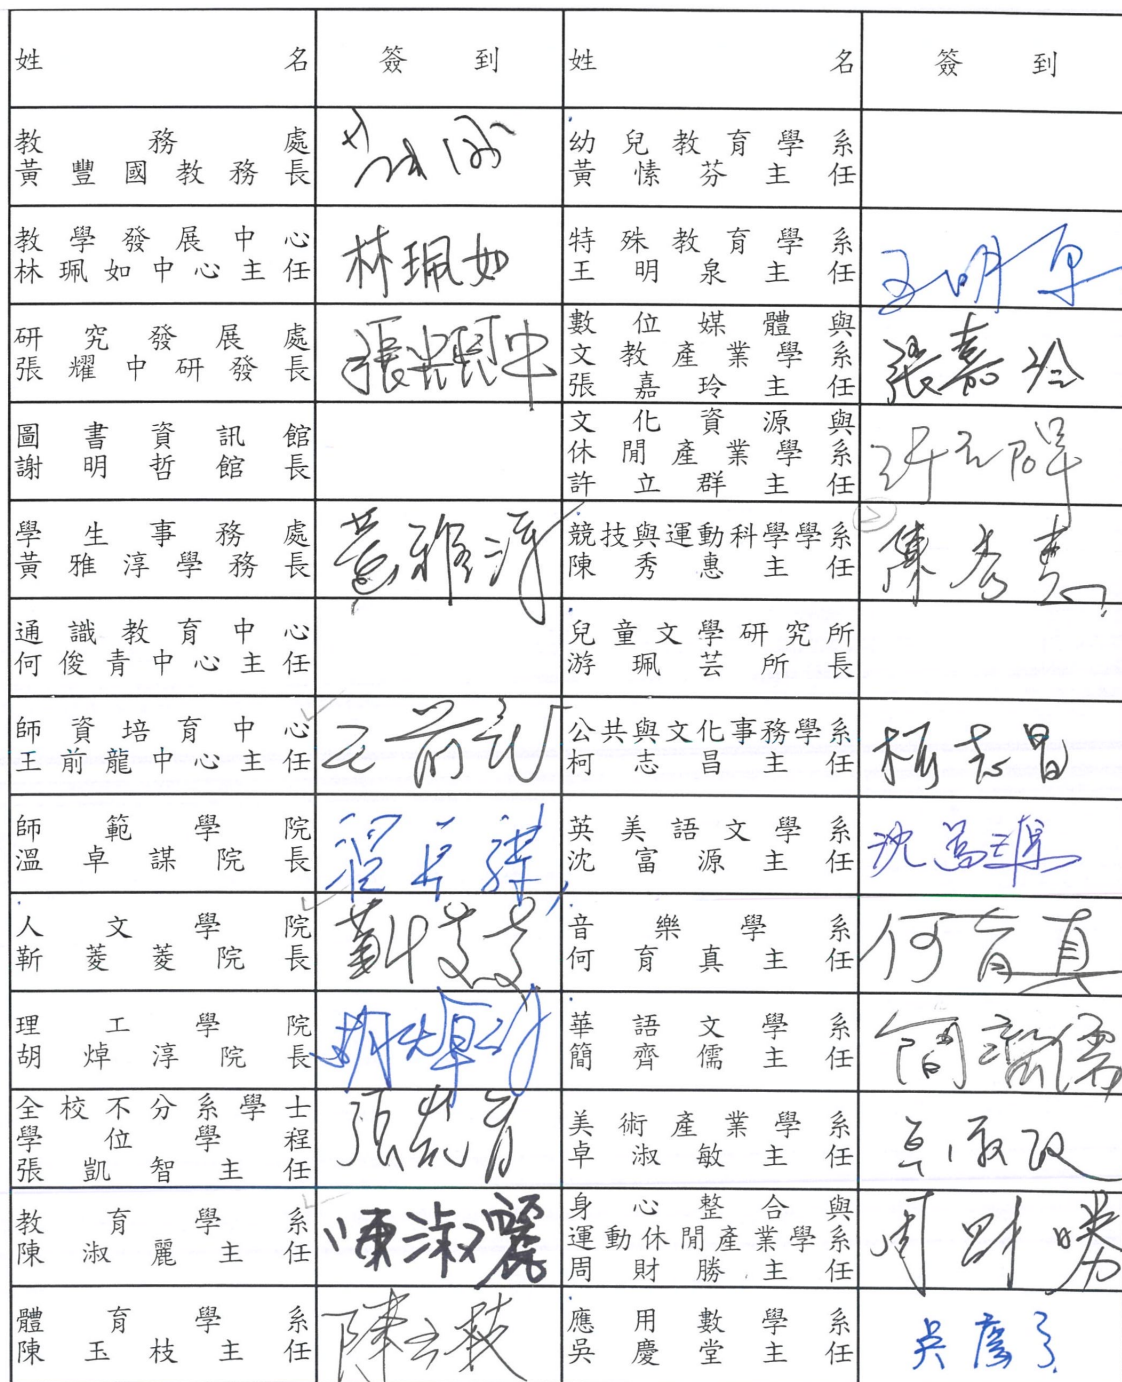 姓名 簽到 姓名 簽到
教務處
黃豐國教務長
幼兒教育學系
黃愫芬主任
教學發展中心
林珮如中心主任
林珮如
特殊教育學系
王明泉主任
王明泉
研究發展處
張耀中研發長
張耀中
數位媒體與
文教產業學系
張嘉玲主任
張嘉玲
圖書資訊館
謝明哲館長
文化資源與
休閒產業學系
許立群主任
許立群
學生事務處
黃雅淳學務長
黃雅淳
競技與運動科學學系
陳秀惠主任
陳秀惠
通識教育中心
何俊青中心主任
兒童文學研究所
游珮芸所長
師資培育中心
王前龍中心主任
王前龍
公共與文化事務學系
柯志昌主任
柯志昌
師範學院
溫卓謀院長
溫卓謀
英美語文學系
沈富源主任
沈富源
人文學院
靳菱菱院長
靳菱菱
音樂學系
何育真主任
何育真
理工學院
胡焯淳院長
胡焯淳
華語文學系
簡齊儒主任
簡齊儒
全校不分系學士
學位學程
張凱智主任
張凱智
美術產業學系
卓淑敏主任
卓淑敏
教育學系
陳淑麗主任
陳淑麗
身心整合與
運動休閒產業學系
周財勝主任
周財勝
體育學系
陳玉枝主任
陳玉枝
應用數學系
吳慶堂主任